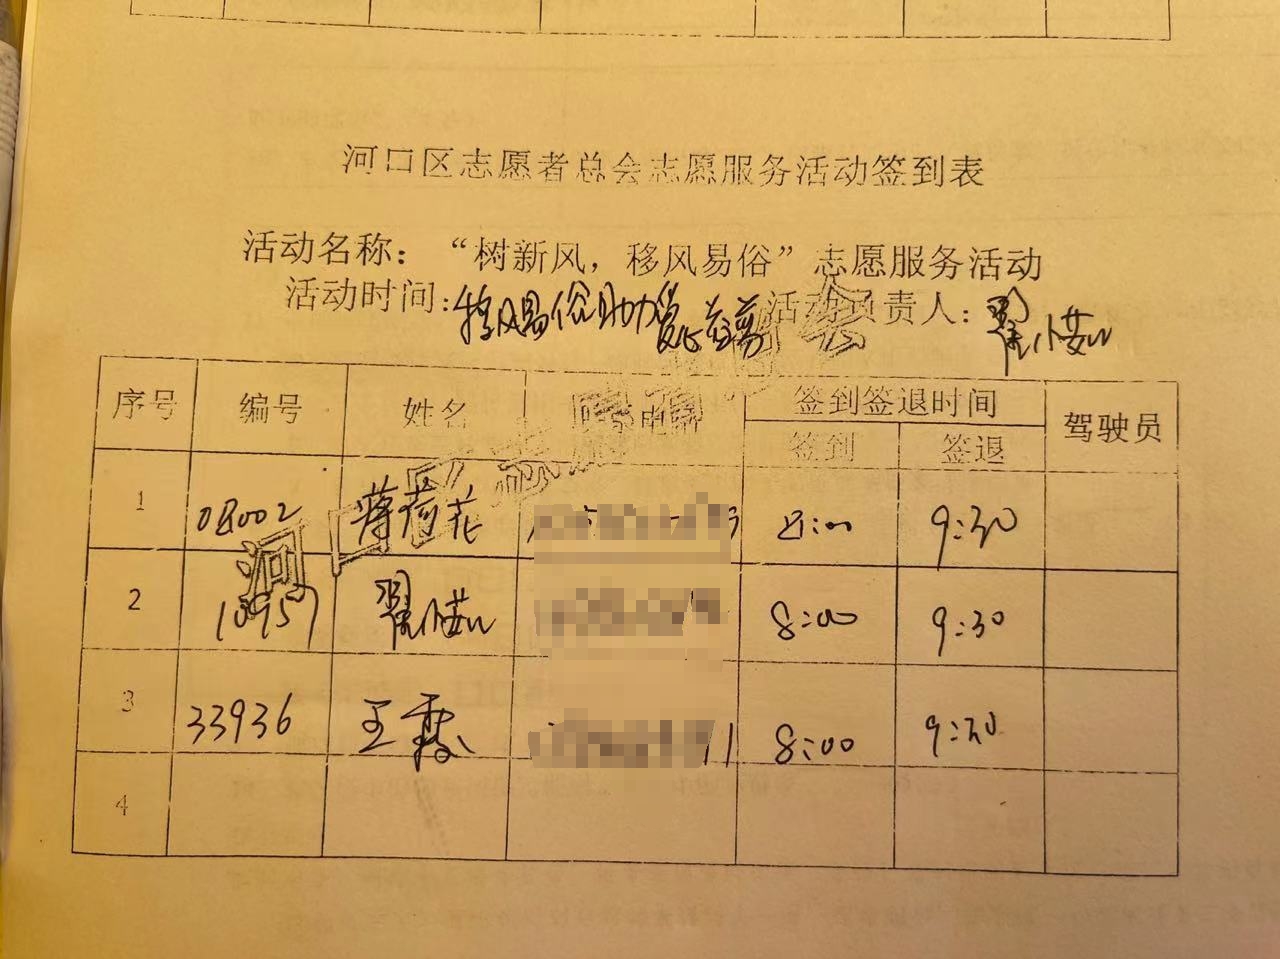 河口区志愿者总会志愿服务活动签到表
活动名称：“树新风，移风易俗”志愿服务活动
活动时间：移风易俗助力 活动负责人：翟小茹
序号 编号 姓名 电话 签到签退时间 驾驶员
签到 签退
1 08002 蒋荷花 8:00 9:30
2 10957 翟小茹 8:00 9:30
3 33936 王 8:00 9:30
4
河口区志愿者总会